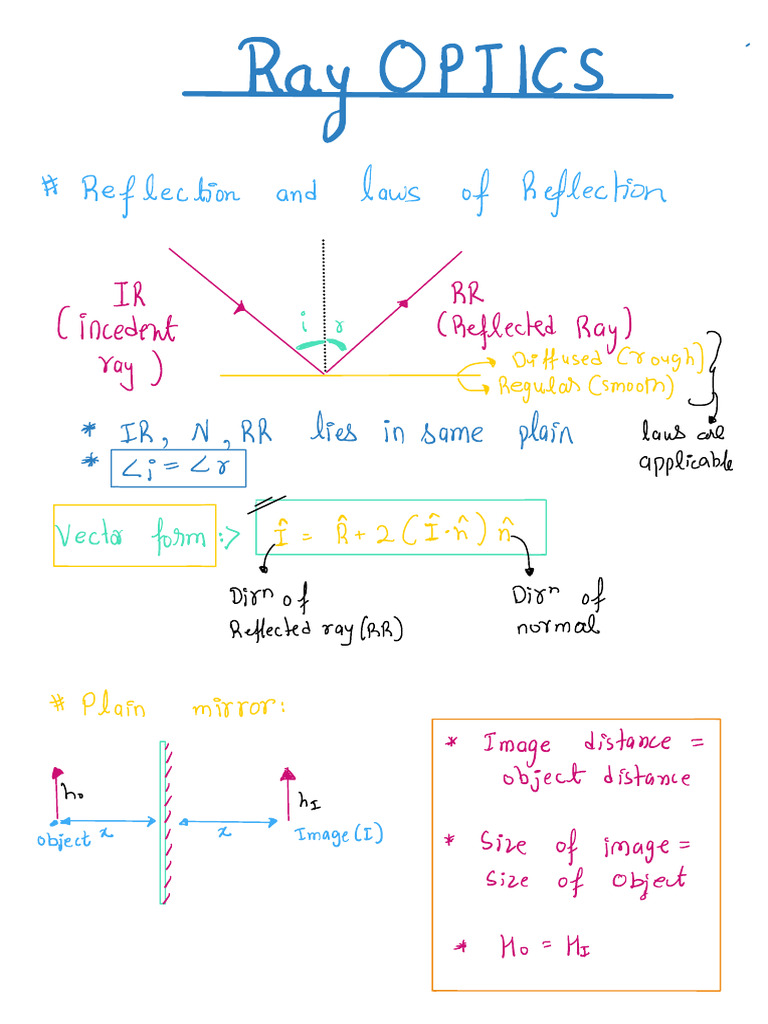 Ray OPTICS
# Reflection and laws of Reflection
IR
(incedent
ray)
i r
RR
(Reflected Ray)
Diffused (rough)
Regular (smooth)
laws are
applicable
* IR, N, RR lies in same plain
* ∠i = ∠r
Vector form :->
Î = R̂ + 2 (Î·n̂) n̂
Dirⁿ of
Reflected ray (RR)
Dirⁿ of
normal
# Plain mirror:
ho
hI
object x
x
Image (I)
* Image distance =
object distance
* Size of image =
Size of object
* Ho = HI